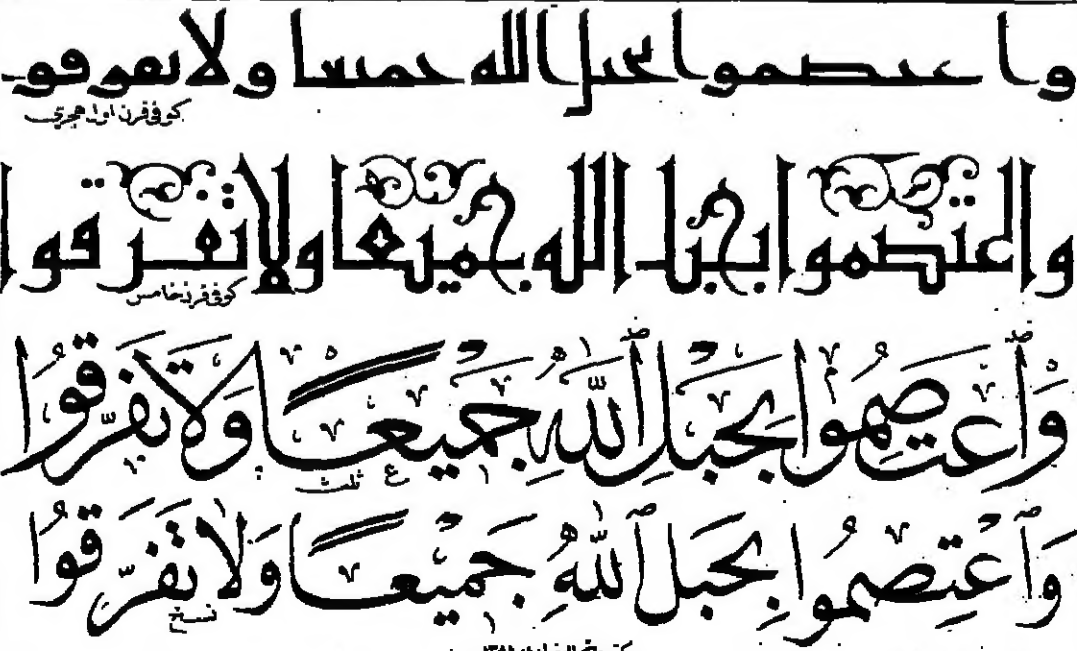 واعتصموا بحبل الله جميعا ولا تفرقو
كوفي قرن اول هجري
واعتصموا بحبل الله جميعا ولا تفرقوا
كوفي قرن خامس
وَٱعْتَصِمُوا بِحَبْلِ ٱللَّهِ جَمِيْعًا وَلَا تَفَرَّقُوا
ثلث
وَٱعْتَصِمُوا بِحَبْلِ ٱللَّهِ جَمِيْعًا وَلَا تَفَرَّقُوا
نسخ